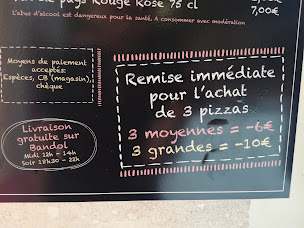 pays Rouge Rosé 75 cl
7,00€
L'abus d'alcool est dangereux pour la santé. A consommer avec modération
Moyens de paiement
acceptés:
Espèces, CB (magasin),
chèque
Remise immédiate
pour l'achat
de 3 pizzas
3 moyennes = -6€
3 grandes = -10€
Livraison
gratuite sur
Bandol
Midi 12h - 14h
Soir 18h30 - 22h